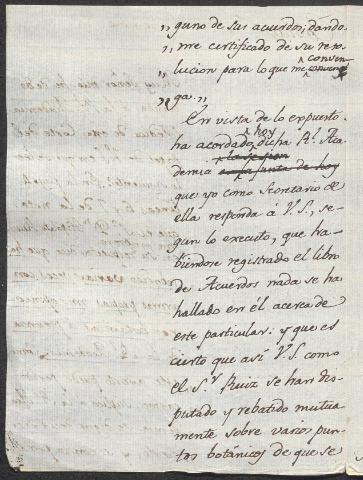 „ guno de sus acuerdos; dando-
„ me certificado de su reso-
„ lucion para lo que me conven-
„ ga. „
En vista de lo expuesto
ha acordado hoy dicha Rl. Aca-
demia en la sesion en la Junta de hoy
que yo como Secretario de
ella responda á V.S., se-
gun lo executo, que ha-
biendose registrado el libro
de Acuerdos nada se ha
hallado en él acerca de
este particular: y que es
cierto que asi V.S. como
el Sr. Ruiz se han dis-
putado y rebatido mutua-
mente sobre varios pun-
tos botánicos de que se